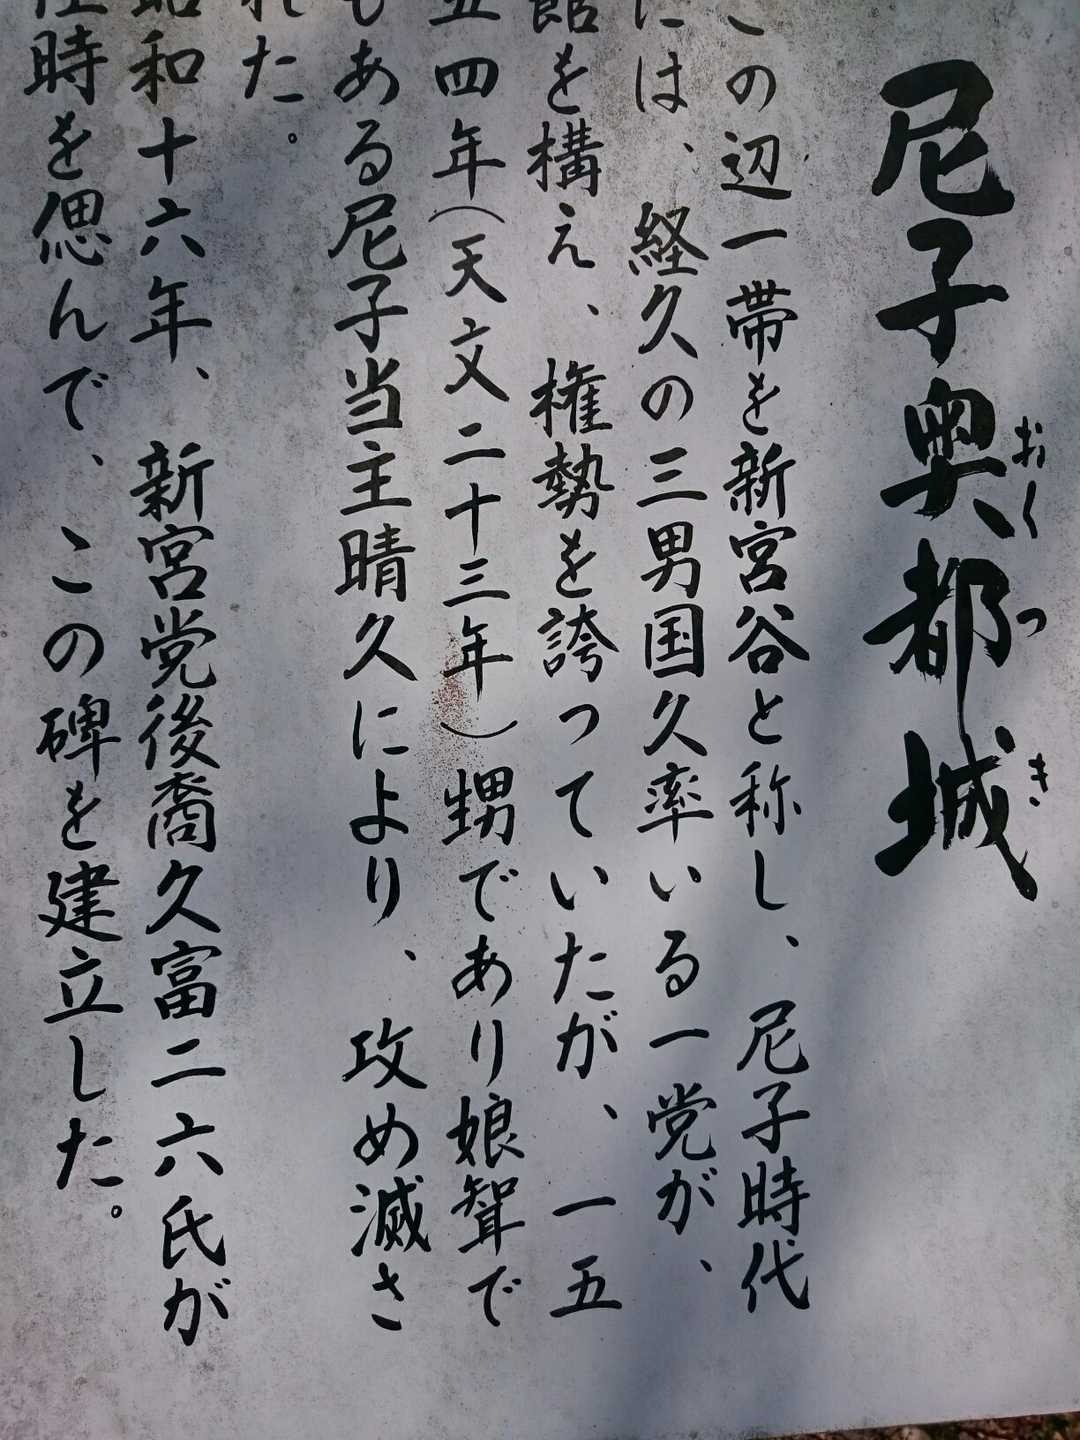 尼子奥都城
おくつき
この辺一帯を新宮谷と称し、尼子時代
には、経久の三男国久率いる一党が、
館を構え、権勢を誇っていたが、一五
五四年(天文二十三年)甥であり娘聟で
もある尼子当主晴久により、攻め滅さ
れた。
昭和十六年、新宮党後裔久富二六氏が
往時を偲んで、この碑を建立した。